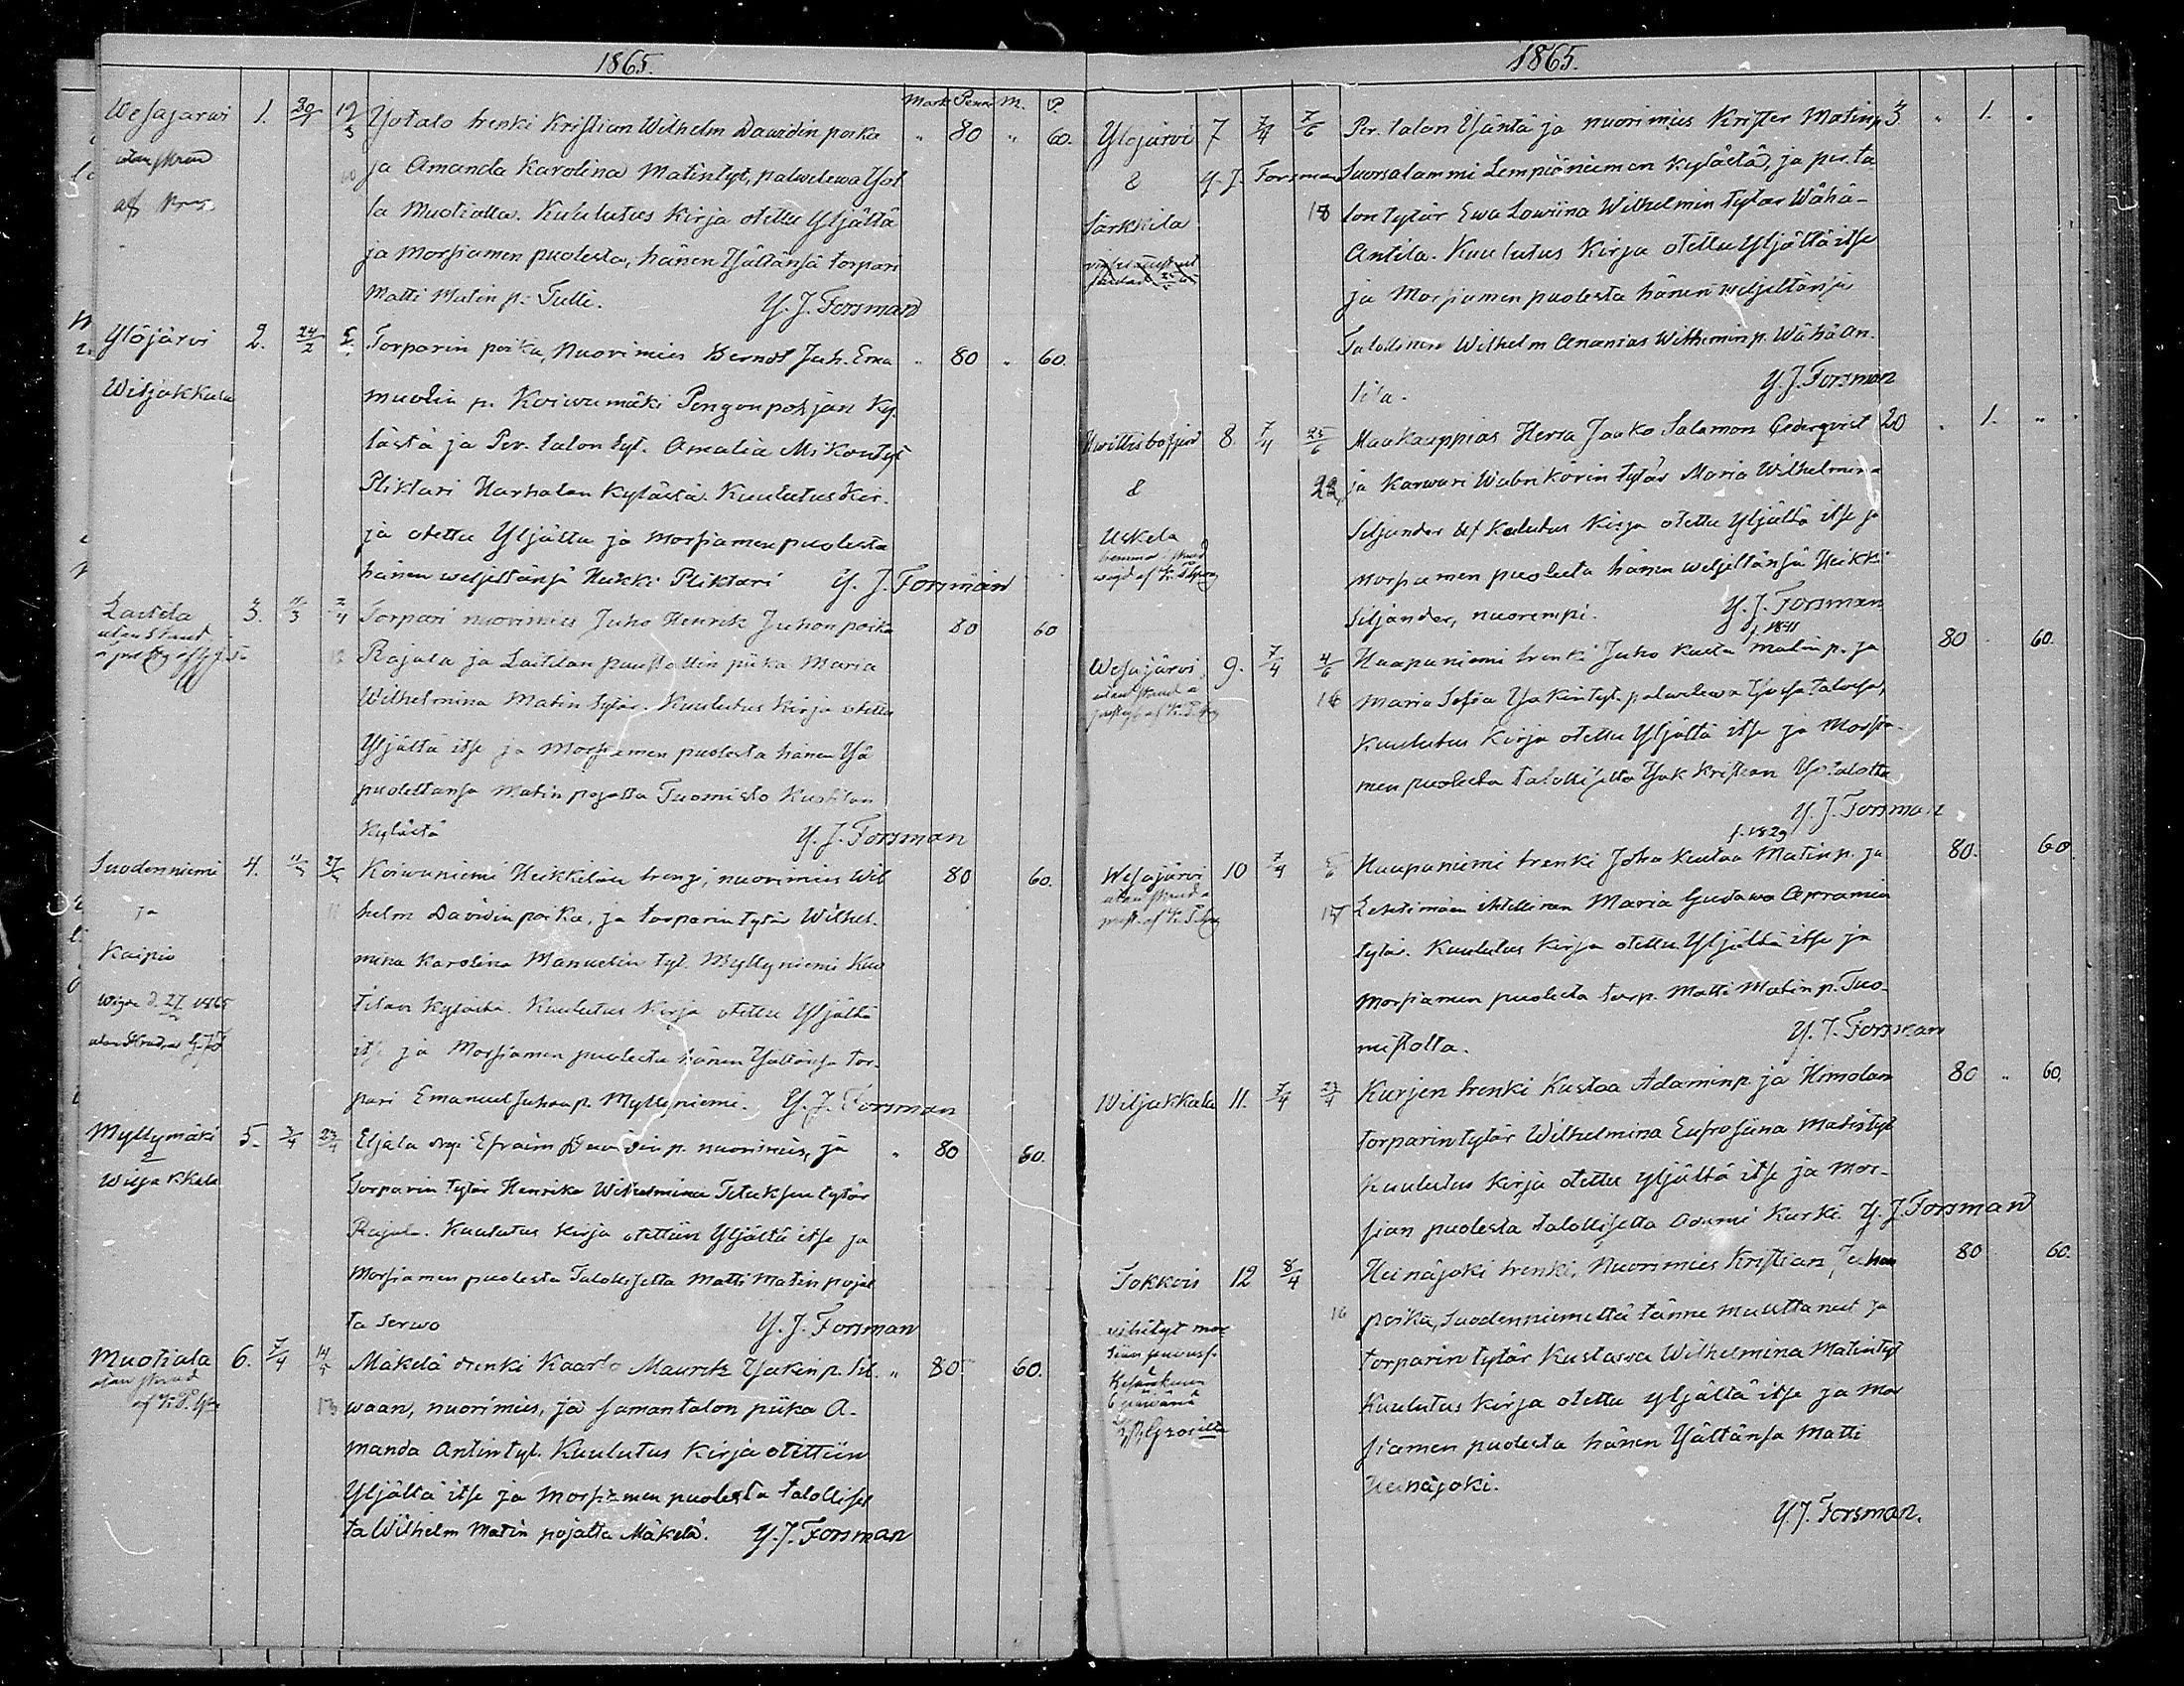 1865.
Mark Penni M. P.
Wesajärwi 1. 29/1 19/3 Yotalo trenki Kristian Wilhelm Dawidin poika " 80 " 60.
utan skrud ja Amanda Karolina Matintyt, palwelewa Yot
af la Muotialla. Kuulutus kirja otettu Yljältä
ja Morsiamen puolesta, hänen Isältänsä torpari
Matti Matin p. Tulli. Y. J. Forsman
Ylöjärvi 2. 24/2 Torparin poika, Nuorimies Berndt Juh. Ema " 80 " 60.
Wiljakkala muelin p. Koiwumäki Pengonpohjan Ky.
lästä ja Per. talon tyt. Amalia Mikontyt
Pliktari Harhalan Kylästä. Kuulutus kir.
ja otettu Yljältä ja Morsiamen puolesta
hänen weljeltänsä Heikki Pliktari Y. J. Forsman
Laitila 3. 11/3 2/4 Torpari nuorimies Juho Henrik Juhon poika 80 60
utan skrud 12 Rajala ja Laitilan puustollin piika Maria
Wilhelmina Matin tytär. Kuulutus kirja otettu
Yljältä itse ja Morsiamen puolesta hänen Isä
puoleltansa Matin pojalta Tuomisto Kustilan
Kylästä Y. J. Forsman
Suodenniemi 4. 11/3 27/5 Koiwuniemi Heikkilän trengi, nuorimies Wil 80 60.
ja 11 helm Dawidin poika, ja torparin tytär Wilhel.
Kaipio mina Karolina Manuelin tyt. Myllyniemi Kus
1865 tilan Kylästä. Kuulutus kirja otettu Yljältä
itse ja Morsiamen puolesta hänen Isältänsä tor.
pari Emanuel Juhonp. Myllyniemi. Y. J. Forsman
Myllymäki 5. 3/4 23/4 Eljala Efraim Dawidin p. nuorimies, ja " 80 60.
Wiljakkala Torparin tytär Henrika Wilhelmina Tituksen tytär
Rajala. Kuulutus kirja otettiin Yljältä itse ja
Morsiamen puolesta Talolliselta Matti Matin pojal
ta Serwo Y. J. Forsman
Muotiala 6. 7/4 14/5 Mäkelä drenki Kaarlo Mauritz Isakin p. Sil. " 80 60.
utan skrud 13 waan, nuorimies, ja saman talon piika A.
manda Antin tyt. Kuulutus Kirja otettiin
Yljältä itse ja Morsiamen puolesta talollisel
ta Wilhelm Matin pojalta Mäkelä. Y. J. Forsman
1865.
Ylöjärvi 7 7/4 7/6 Per. talon Isäntä ja nuorimies Krister Matinp. 3. " 1. "
& Y. J. Forsman Suorsalammi Lempiäniemen Kylästä, ja per. ta
Särkkilä 18 lon tytär Ewa Lowiina Wilhelmin tytär Wähä-
Antila. Kuulutus Kirja otettu Yljältä itse
ja Morsiamen puolesta hänen weljeltänsä
Talollinen Wilhelm Ananias Wilhelminp. Wähä An.
tila. Y. J. Forsman
8. 7/4 25/6 Maakauppias Herra Jaako Salamon Cederqvist 20 " 1. "
& 22 ja Karwari tytär Maria Wilhelmina
Uskela Siljander Kuulutus Kirja otettu Yljältä itse ja
Morsiamen puolesta hänen weljeltänsä Heikki
Siljander, nuorempi. Y. J. Forsman
f. 1841
Wesajärwi 9. 7/4 4/6 Haapaniemi trenki Juho Kusta Matin p. ja 80 60.
utan skrud 16 Maria Sofia Isakin tyt. palwelewa talosa,
Kuulutus Kirja otettu Yljältä itse ja Morsia-
men puolesta talolliselta Isak Kristian Yotalolta
Y. J. Forsman
f. 1829
Wesajärvi 10 7/4 5/6 Haapaniemi trenki Juha Kustaa Matin p. ja 80. 60
utan skrud 17 Lehtimäen itsellinen Maria Gustawa Apramin
tytär. Kuulutus Kirja otettu Yljältä itse ja
Morsiamen puolesta torp. Matti Matin p. Tuo-
mistolta. Y. J. Forsman
Wiljakkala 11. 7/4 23/4 Kurjen trenki Kustaa Adamin p. ja Himolan 80 " 60.
torparin tytär Wilhelmina Eufrosiina Matintyt
Kuulutus Kirja otettu yljältä itse ja Mor-
sian puolesta talolliselta Aadami Kurki. Y. J. Forsman
Sokkois 12 8/4 Heinäjoki trenki, Nuorimies Kristian Juhan 80 60.
wihityt 16 poika, Suodenniemeltä tänne muuttanut ja
torparin tytär Kustawa Wilhelmina Matintyt
Kesäkuun Kuulutus Kirja otettu yljältä itse ja Mor
6 päiwänä siamen puolesta hänen Isältänsä Matti
Heinäjoki.
Y. J. Forsman.